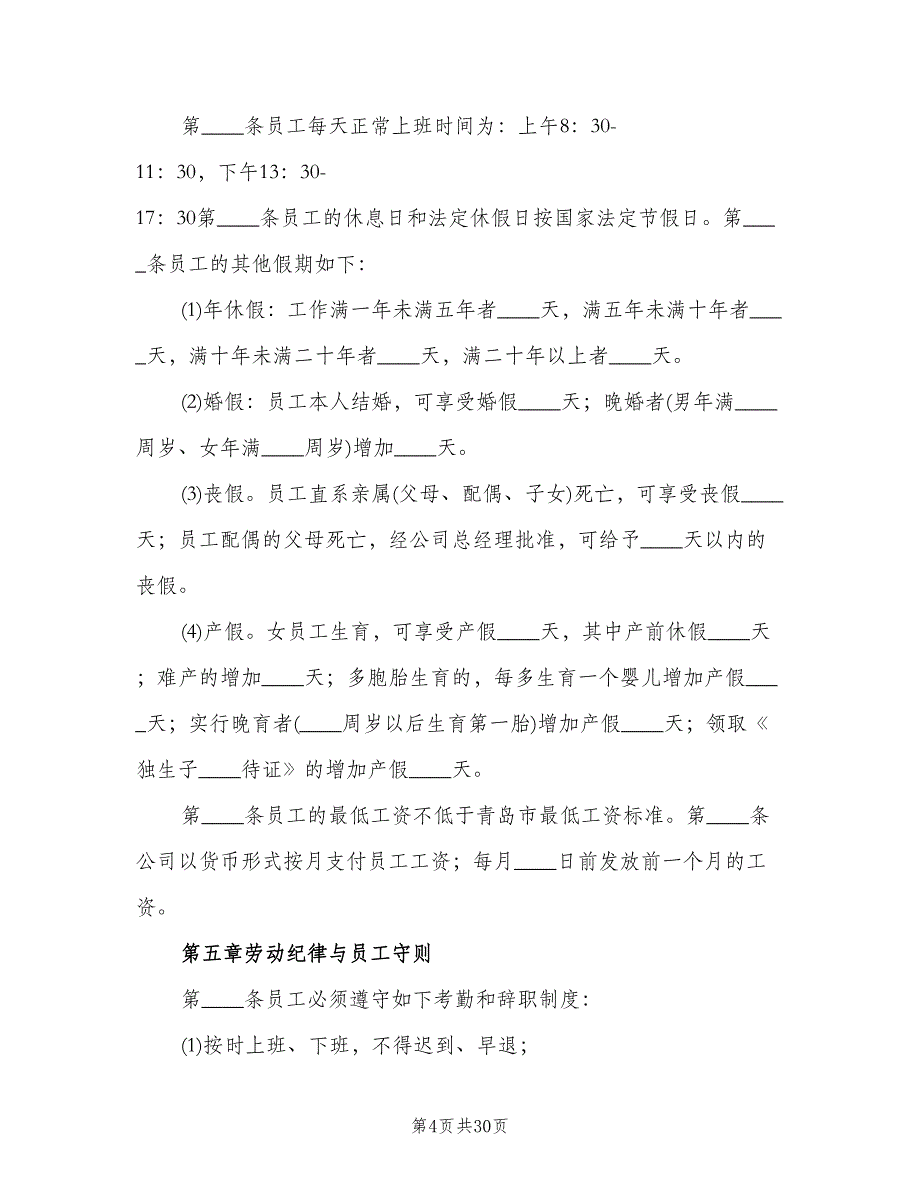 第____条员工每天正常上班时间为：上午8：30-
11：30，下午13：30-
17：30第____条员工的休息日和法定休假日按国家法定节假日。第___
_条员工的其他假期如下：
(1)年休假：工作满一年未满五年者____天，满五年未满十年者___
_天，满十年未满二十年者____天，满二十年以上者____天。
(2)婚假：员工本人结婚，可享受婚假____天；晚婚者(男年满____
周岁、女年满____周岁)增加____天。
(3)丧假。员工直系亲属(父母、配偶、子女)死亡，可享受丧假____
天；员工配偶的父母死亡，经公司总经理批准，可给予____天以内的
丧假。
(4)产假。女员工生育，可享受产假____天，其中产前休假____天
；难产的增加____天；多胞胎生育的，每多生育一个婴儿增加产假___
_天；实行晚育者(____周岁以后生育第一胎)增加产假____天；领取《
独生子____待证》的增加产假____天。
第____条员工的最低工资不低于青岛市最低工资标准。第____条
公司以货币形式按月支付员工工资；每月____日前发放前一个月的工
资。
第五章劳动纪律与员工守则
第____条员工必须遵守如下考勤和辞职制度：
(1)按时上班、下班，不得迟到、早退；
第4页共30页